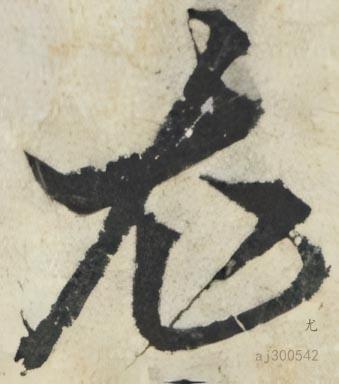 尤
尤
aj300542